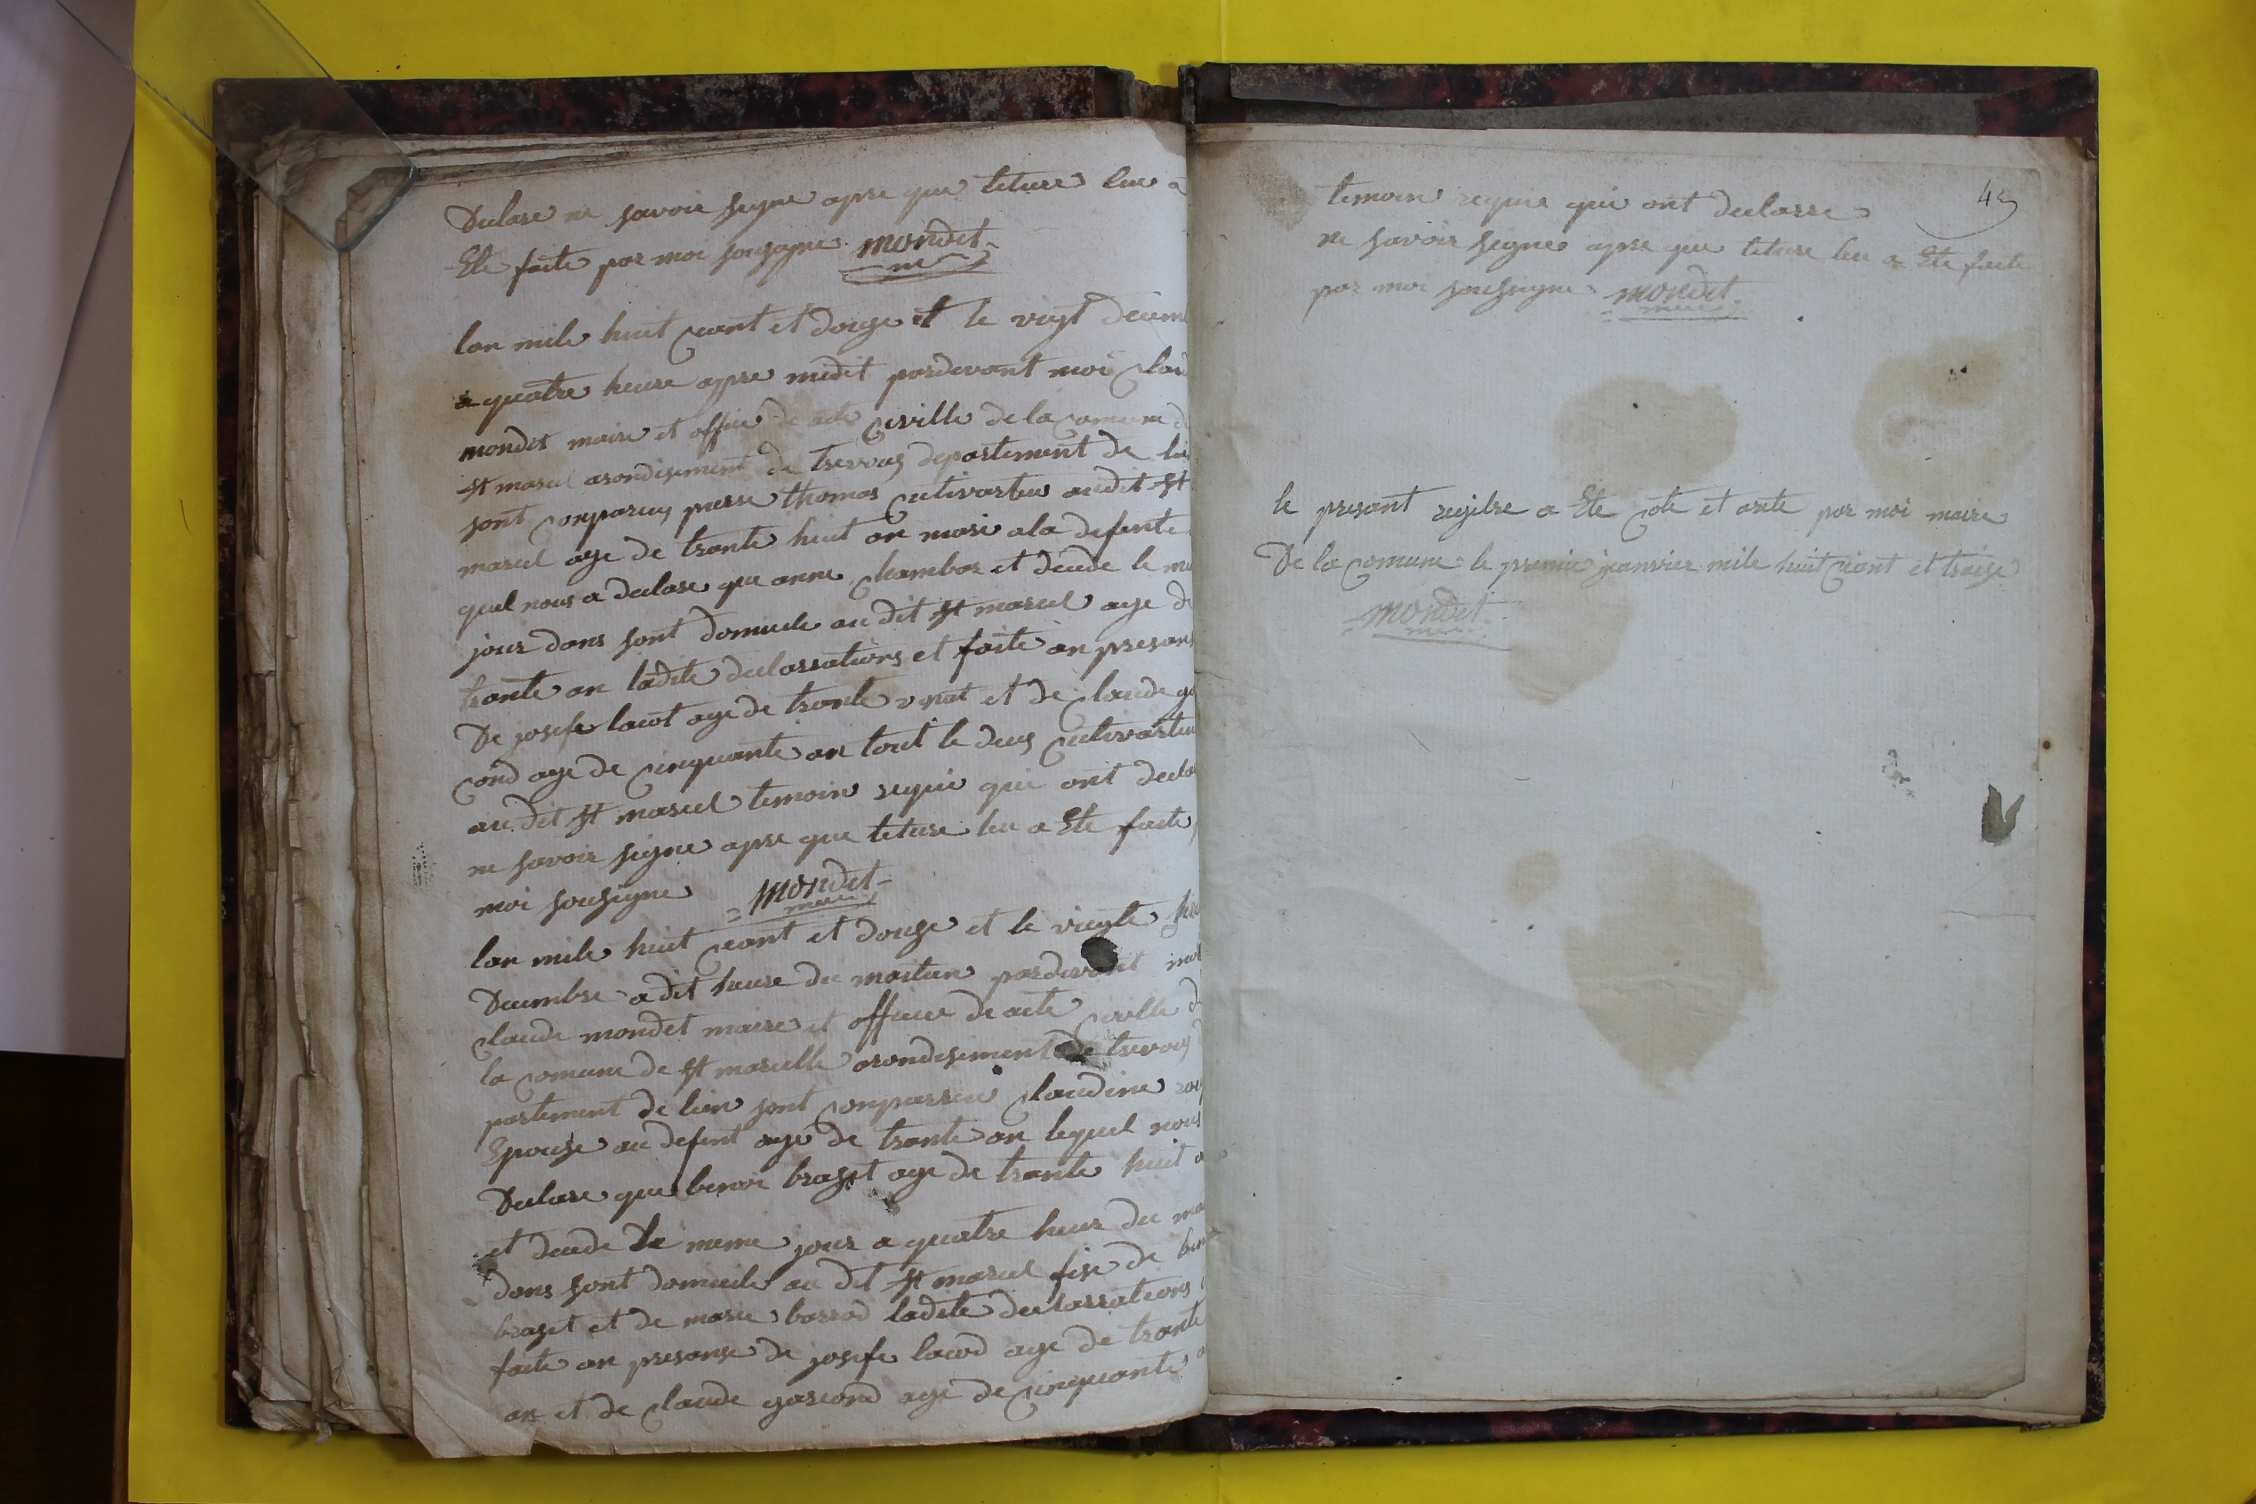 Declare ne savoir signe apre que leture lue a
Ete faite par moi sousigne mondet
maire
lan mile huit cant et douze et le vigt decem
a quatre heure apre midit pardevant moi Clau
mondet maire et officié de acte civille de la comune d
st marcel arondisement de trevous departement de lai
sont conparus pierre thomas cultivarteur audit st
marcel age de trante huit an mari a la defente
quel nous a declare que anne Chambar et decede le me
jour dans sont domicile au dit st marcel age de
trante an ladite declarrations et faite an presans
De josefe lacot age de trante et de claude ga
cond age de cinquante an tout le deus cultivarteu
au dit st marcel temoin requi qui ont decla
ne savoir signe apre que leture lu a Ete faite
moi sousigne mondet
maire
lan mile huit cant et douze et le vingte
Decembre a dit heure du maitin pardevant moi
claude mondet maire et officier de acte civille d
la comune de st marcelle arondisement de trevous
partement de lain sont comparrue claudine
Epouse au defent age de trante an lequel nous
Declare que benoi braset age de trante huit a
et decede le meme jour a quatre heur du ma
dans sont domicile au dit st marcel fise de ben
braset et de marie barrad ladite declarrations
faite an presanse de josefe lacod age de trante
an et de claude gascond age de cinquante a
45
temoin requis qui ont declarre
ne savoir signer apre que leture lu a Ete faite
par moi sousigne mondet
maire
le presant regitre a Ete cote et arete par moi maire
De la comune le premié janvier mile huit ciant et traise
mondet
maire